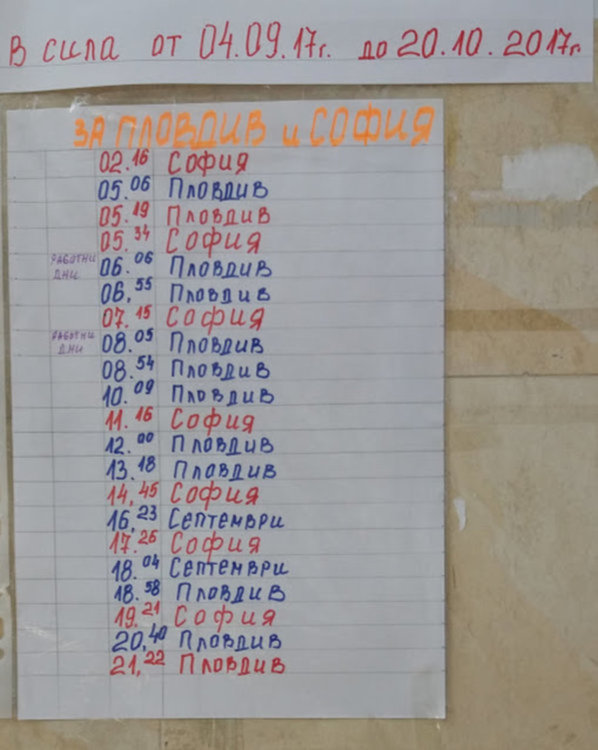 В сила от 04.09.17г. до 20.10.2017г.
ЗА ПЛОВДИВ и СОФИЯ
02.16 София
05.06 Пловдив
05.19 Пловдив
05.34 София
РАБОТНИ ДНИ 06.06 Пловдив
06.55 Пловдив
07.15 София
РАБОТНИ ДНИ 08.05 Пловдив
08.54 Пловдив
10.09 Пловдив
11.16 София
12.00 Пловдив
13.18 Пловдив
14.45 София
16.23 Септември
17.26 София
18.04 Септември
18.58 Пловдив
19.21 София
20.40 Пловдив
21.22 Пловдив